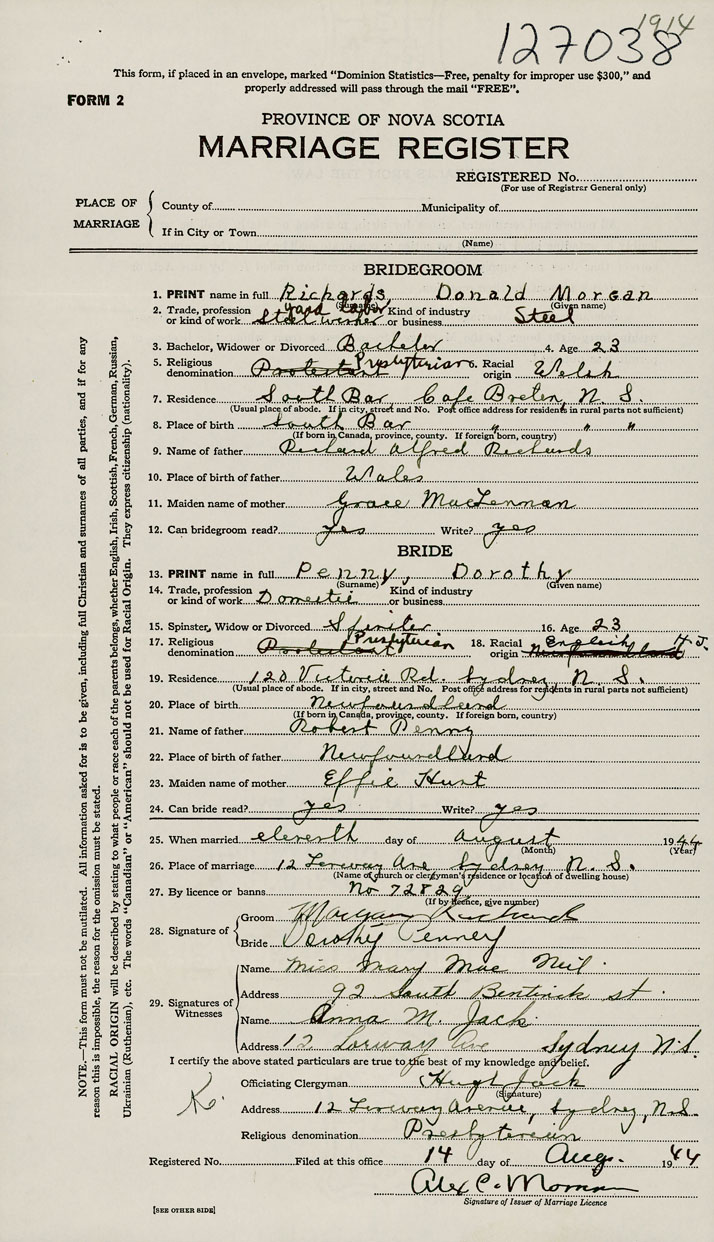 1914
127038
This form, if placed in an envelope, marked "Dominion Statistics—Free, penalty for improper use $300," and
properly addressed will pass through the mail "FREE".
FORM 2
PROVINCE OF NOVA SCOTIA
MARRIAGE REGISTER
REGISTERED No.
(For use of Registrar General only)
PLACE OF MARRIAGE
County of Municipality of
If in City or Town
(Name)
BRIDEGROOM
1. PRINT name in full Richards, Donald Morgan
(Surname) (Given name)
yard labor
2. Trade, profession or kind of work Steel worker Kind of industry or business Steel
3. Bachelor, Widower or Divorced Bachelor 4. Age 23
5. Religious denomination Protestant Presbyterian 6. Racial origin Welsh
7. Residence South Bar, Cape Breton, N. S.
(Usual place of abode. If in city, street and No. Post office address for residents in rural parts not sufficient)
8. Place of birth South Bar " " "
(If born in Canada, province, county. If foreign born, country)
9. Name of father Richard Alfred Richards
10. Place of birth of father Wales
11. Maiden name of mother Grace MacLennan
12. Can bridegroom read? yes Write? yes
BRIDE
13. PRINT name in full Penny, Dorothy
(Surname) (Given name)
14. Trade, profession or kind of work Domestic Kind of industry or business
15. Spinster, Widow or Divorced Spinster 16. Age 23
17. Religious denomination Protestant Presbyterian 18. Racial origin English Newfoundland
19. Residence 120 Victoria Rd. Sydney, N. S.
(Usual place of abode. If in city, street and No. Post office address for residents in rural parts not sufficient)
20. Place of birth Newfoundland
(If born in Canada, province, county. If foreign born, country)
21. Name of father Robert Penny
22. Place of birth of father Newfoundland
23. Maiden name of mother Effie Hunt
24. Can bride read? yes Write? yes
25. When married eleventh day of August 1944
(Month) (Year)
26. Place of marriage 12 Lorway Ave Sydney N. S.
(Name of church or clergyman's residence or location of dwelling house)
27. By licence or banns No 72829
(If by licence, give number)
28. Signature of
Groom Morgan Richards
Bride Dorothy Penney
29. Signatures of Witnesses
Name Miss Mary Mac Neil
Address 92 South Bentinck st.
Name Anna M. Jack
Address 12 Lorway Ave Sydney N.S.
I certify the above stated particulars are true to the best of my knowledge and belief.
Officiating Clergyman Hugh Jack
(Signature)
Address 12 Lorway Avenue, Sydney, N.S.
Religious denomination Presbyterian
Registered No. Filed at this office 14 day of Aug. 1944
Alex C.
Signature of Issuer of Marriage Licence
[SEE OTHER SIDE]
NOTE.—This form must not be mutilated. All information asked for is to be given, including full Christian and surnames of all parties, and if for any
reason this is impossible, the reason for the omission must be stated.
RACIAL ORIGIN will be described by stating to what people or race each of the parents belongs, whether English, Irish, Scottish, French, German, Russian,
Ukrainian (Ruthenian), etc. The words "Canadian" or "American" should not be used for Racial Origin. They express citizenship (nationality).